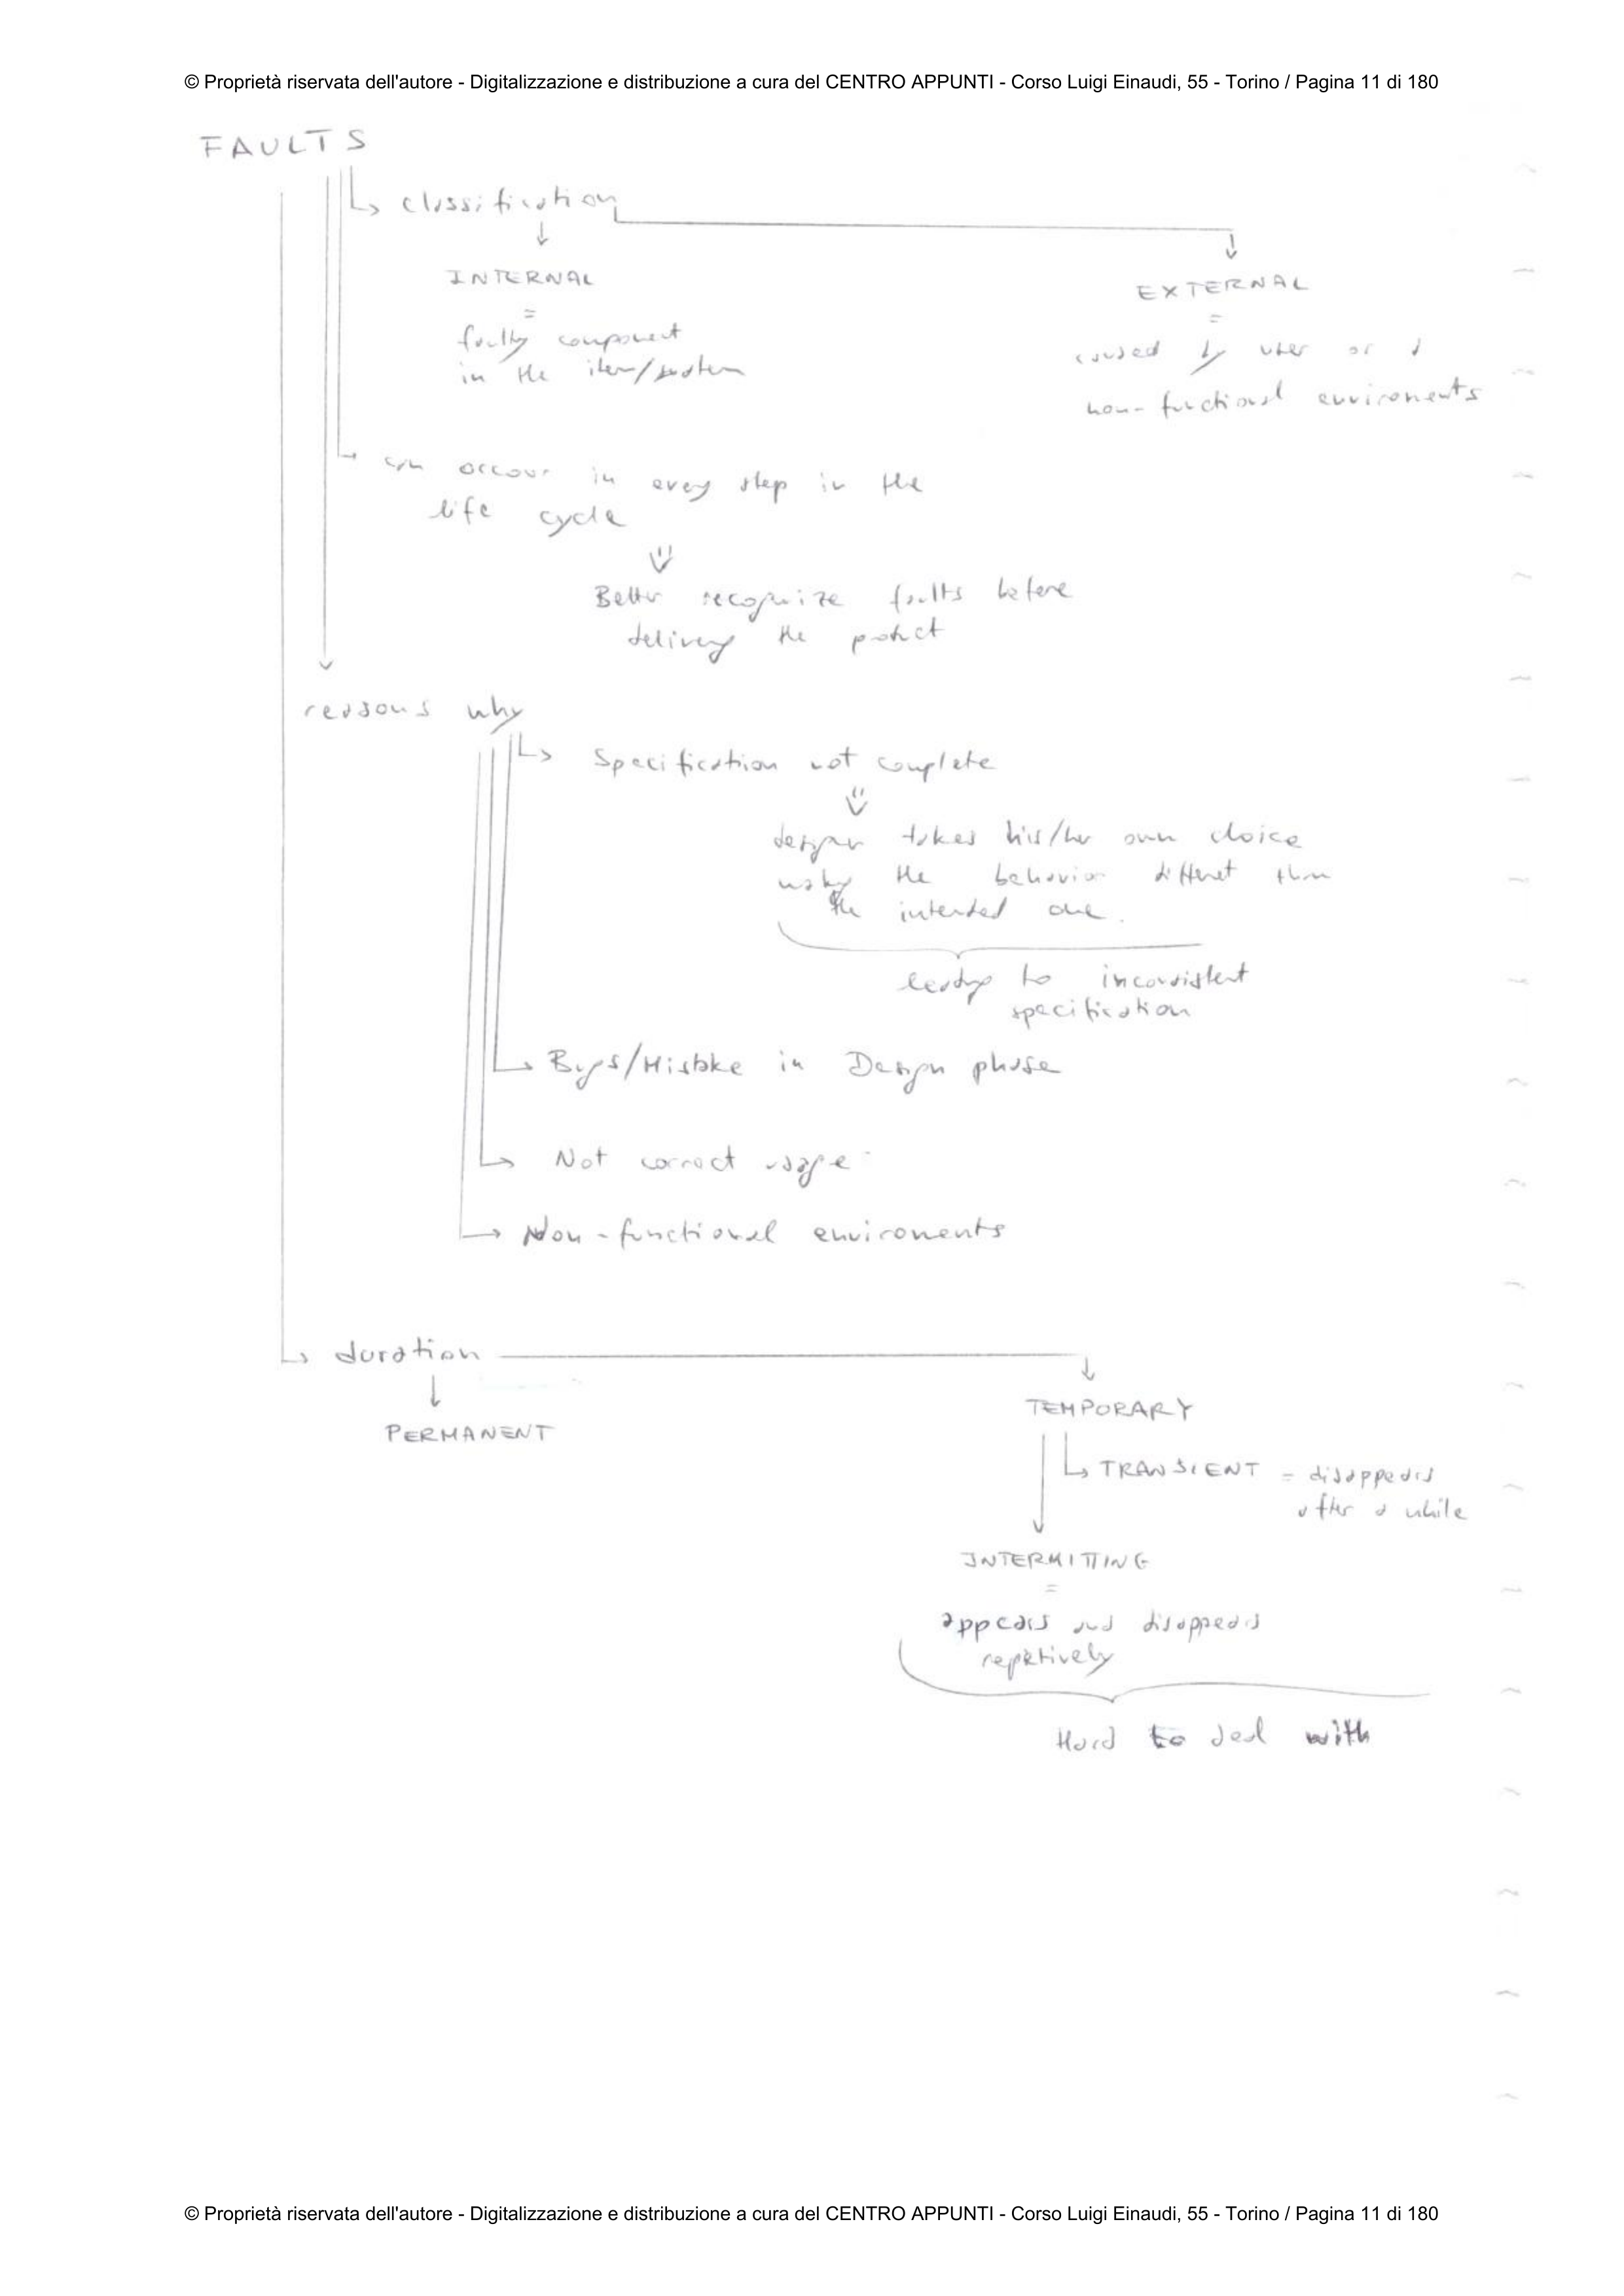 © Proprietà riservata dell'autore - Digitalizzazione e distribuzione a cura del CENTRO APPUNTI - Corso Luigi Einaudi, 55 - Torino / Pagina 11 di 180
FAULTS
classification
INTERNAL
EXTERNAL
=
=
faulty component
in the item/system
caused by user or a
non-functional enviroments
can occour in every step in the
life cycle
Better recognize faults before
delivery the product
reasons why
Specification not complete
designer takes his/her own choice
making the behavior different than
the intended one.
leading to inconsistent
specification
Bugs/Mistake in Design phase
Not correct usage
Non-functional enviroments
duration
PERMANENT
TEMPORARY
TRANSIENT = disappears
after a while
INTERMITTING
=
appears and disappears
repetively
Hard to deal with
© Proprietà riservata dell'autore - Digitalizzazione e distribuzione a cura del CENTRO APPUNTI - Corso Luigi Einaudi, 55 - Torino / Pagina 11 di 180